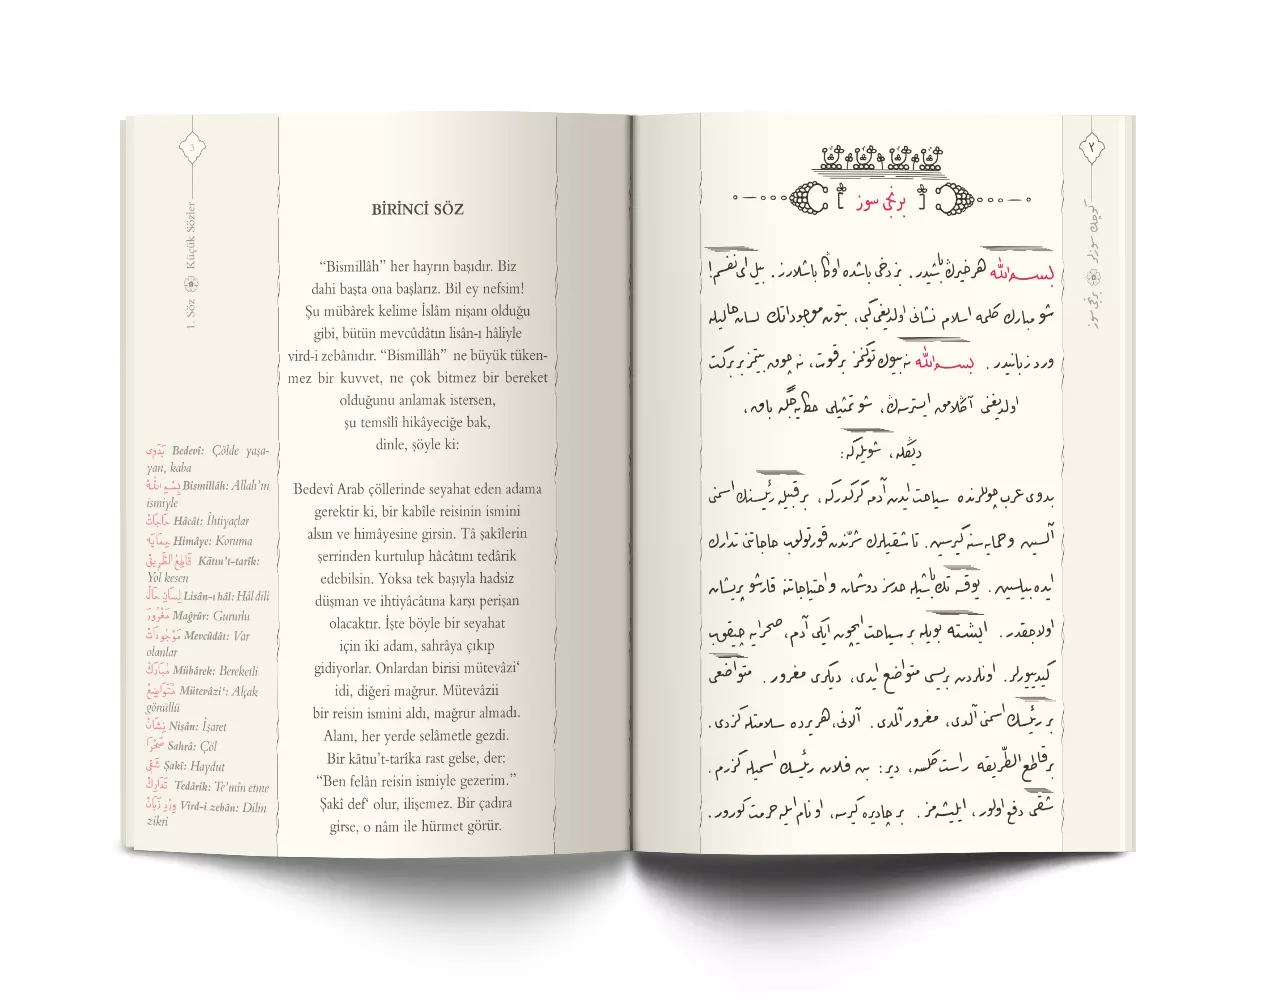 3
1. Söz Küçük Sözler
BİRİNCİ SÖZ
“Bismillâh” her hayrın başıdır. Biz
dahi başta ona başlarız. Bil ey nefsim!
Şu mübârek kelime İslâm nişanı olduğu
gibi, bütün mevcûdâtın lisân-ı hâliyle
vird-i zebânıdır. “Bismillâh” ne büyük tüken-
mez bir kuvvet, ne çok bitmez bir bereket
olduğunu anlamak istersen,
şu temsîlî hikâyeciğe bak,
dinle, şöyle ki:
Bedevî Arab çöllerinde seyahat eden adama
gerektir ki, bir kabîle reisinin ismini
alsın ve himâyesine girsin. Tâ şakîlerin
şerrinden kurtulup hâcâtını tedârik
edebilsin. Yoksa tek başıyla hadsiz
düşman ve ihtiyâcâtına karşı perişan
olacaktır. İşte böyle bir seyahat
için iki adam, sahrâya çıkıp
gidiyorlar. Onlardan birisi mütevâzi‘
idi, diğeri mağrur. Mütevâzii
bir reisin ismini aldı, mağrur almadı.
Alanı, her yerde selâmetle gezdi.
Bir kātıu’t-tarîka rast gelse, der:
“Ben felân reisin ismiyle gezerim.”
Şakî def‘ olur, ilişemez. Bir çadıra
girse, o nâm ile hürmet görür.
بَدَوِى Bedevî: Çölde yaşa-
yan, kaba
بِسْمِ اللّٰه Bismillâh: Allah’ın
ismiyle
حَاجَاتْ Hâcât: İhtiyaçlar
حِمَايَه Himâye: Koruma
قَاطِعُ الطَّرِيقْ Kātıu’t-tarîk:
Yol kesen
لِسَانِ حَالْ Lisân-ı hâl: Hâl dili
مَغْرُورْ Mağrûr: Gururlu
مَوْجُودَاتْ Mevcûdât: Var
olanlar
مُبَارَكْ Mübârek: Bereketli
مُتَوَاضِعْ Mütevâzi‘: Alçak
gönüllü
نِشَانْ Nişân: İşaret
صَحْرَا Sahrâ: Çöl
شَقِى Şakî: Haydut
تَدَارِكْ Tedârik: Te’mîn etme
وِرْدِ زَبَانْ Vird-i zebân: Dilin
zikri
٢
كوچك سوزلر برنجى سوز
برنجى سوز
بسم الله هر خيرك باشيدر. بز دخى باشده اوڭا باشلارز. بيل اى نفسم!
شو مبارك كلمه اسلام نشانى اولديغى كبى، بتون موجوداتك لسان حاليله
ورد زبانيدر. بسم الله نه بيوك توكنمز بر قوت، نه چوق بيتمز بر بركت
اولديغنى آڭلامق ايسترسەڭ، شو تمثيلى حكايه‌جگه باق،
ديڭله، شويله‌كه:
بدوى عرب چوللرنده سياحت ايدن آدمه كركدركه، بر قبيله رئيسنك اسمنى
آلسين و حمايه‌سنه كيرسين. تا شقيلرك شرّندن قورتولوب حاجاتنى تدارك
ايده‌بيلسين. يوقسه تك باشيله حدسز دوشمان و احتياجاتنه قارشو پريشان
اولاجقدر. ايشته بويله بر سياحت ايچون ايكى آدم، صحرايه چيقوب
كيديیورلر. اونلردن بريسى متواضع ايدى، ديكرى مغرور. متواضعى
بر رئيسك اسمنى آلدى، مغرور آلمدى. آلانى، هر يرده سلامتله كزدى.
بر قاطع الطّريقه راست كلسه، دير: بن فلان رئيسك اسميله كزرم.
شقى دفع اولور، ايليشه‌مز. بر چاديره كيرسه، او نام ايله حرمت كورور.